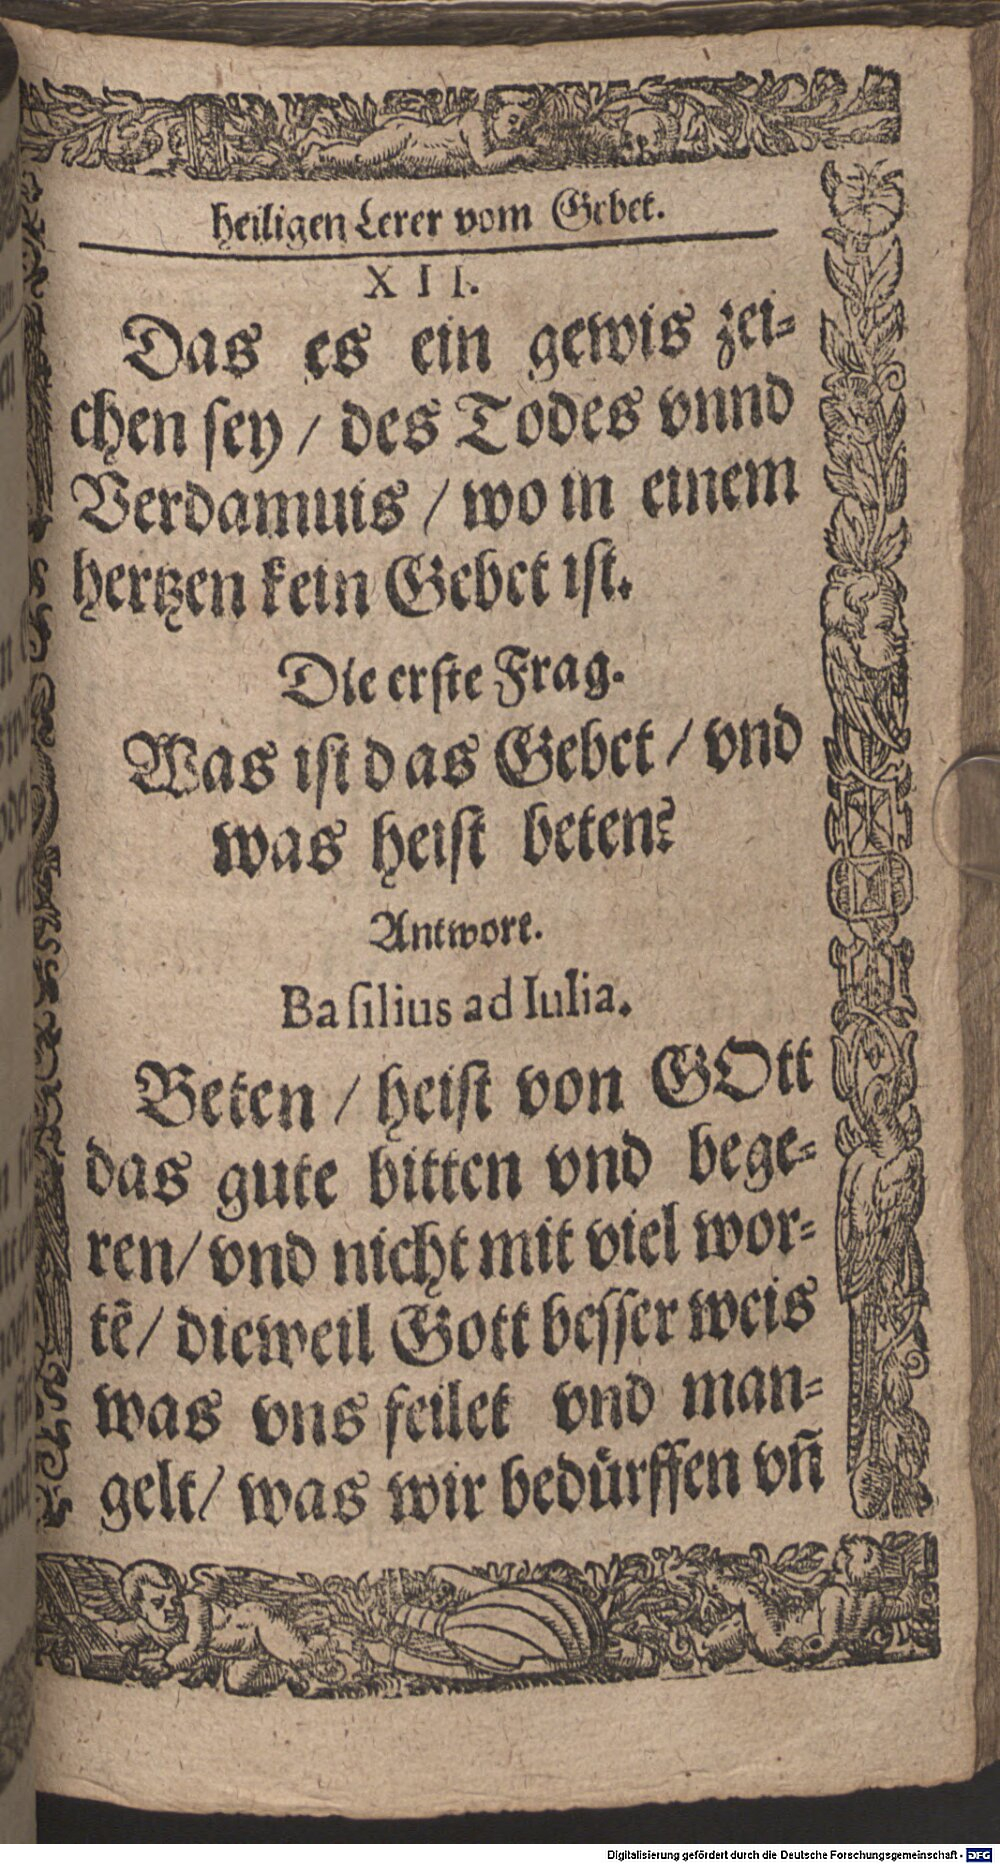 heiligen Lerer vom Gebet.
XII.
Das es ein gewis zei-
chen sey / des Todes vnnd
Verdamnis / wo in einem
hertzen kein Gebet ist.
Die erste Frag.
Was ist das Gebet / vnd
was heist beten?
Antwort.
Basilius ad Iulia.
Beten / heist von GOtt
das gute bitten vnd bege-
ren / vnd nicht mit viel wor-
tē / dieweil Gott besser weis
was vns feilet vnd man-
gelt / was wir bedürffen vñ
Digitalisierung gefördert durch die Deutsche Forschungsgemeinschaft - DFG